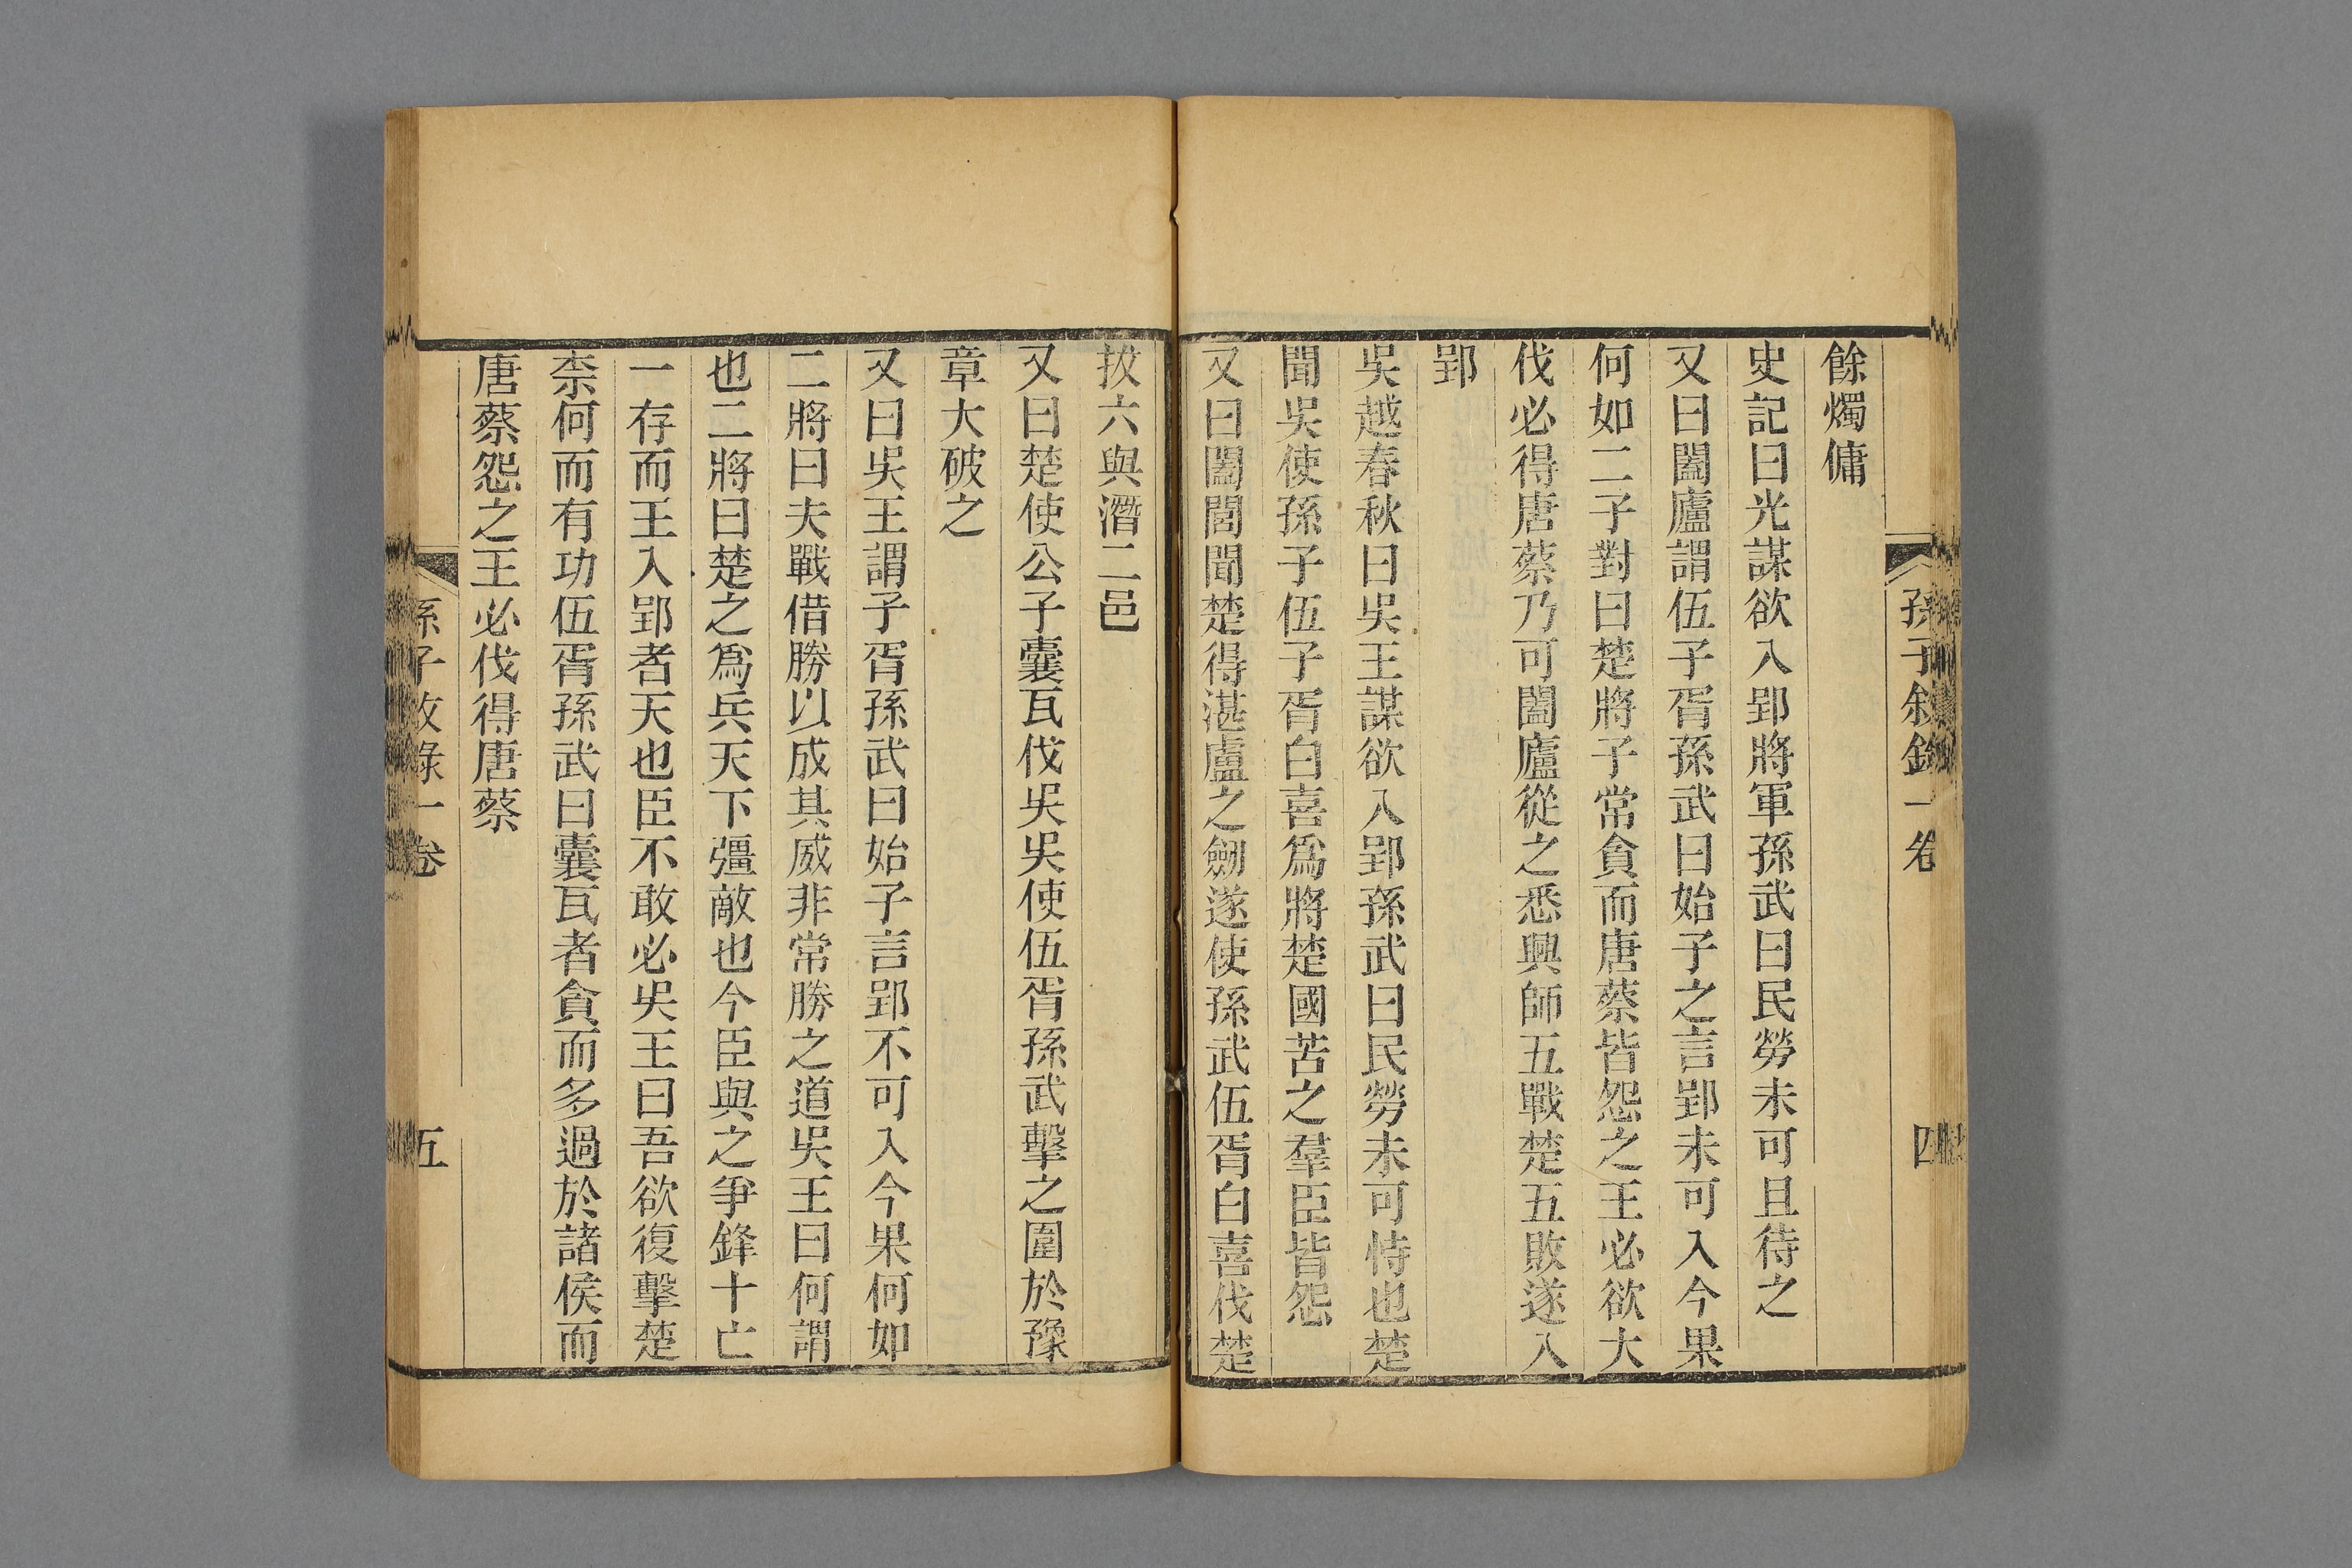 孫子敘錄一卷
四
餘燭傭
史記曰光謀欲入郢將軍孫武曰民勞未可且待之
又曰闔廬謂伍子胥孫武曰始子之言郢未可入今果
何如二子對曰楚將子常貪而唐蔡皆怨之王必欲大
伐必得唐蔡乃可闔廬從之悉興師五戰楚五敗遂入
郢
吳越春秋曰吳王謀欲入郢孫武曰民勞未可恃也楚
聞吳使孫子伍子胥白喜爲將楚國苦之羣臣皆怨
又曰闔閭聞楚得湛盧之劒遂使孫武伍胥白喜伐楚
拔六與潛二邑
又曰楚使公子囊瓦伐吳吳使伍胥孫武擊之圍於豫
章大破之
又曰吳王謂子胥孫武曰始子言郢不可入今果何如
二將曰夫戰借勝以成其威非常勝之道吳王曰何謂
也二將曰楚之爲兵天下彊敵也今臣與之爭鋒十亡
一存而王入郢者天也臣不敢必吳王曰吾欲復擊楚
柰何而有功伍胥孫武曰囊瓦者貪而多過於諸侯而
唐蔡怨之王必伐得唐蔡
孫子敘錄一卷
五